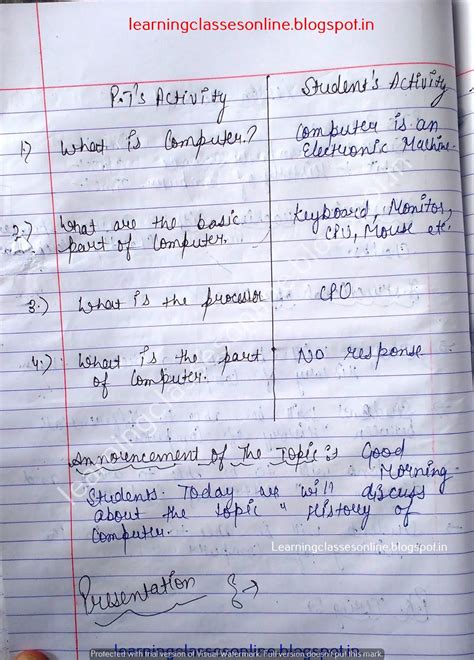 learningclassesonline.blogspot.in
P.T's Activity
Student's Activity
1.) What is Computer.?
Computer is an
Electronic Machine.
2.) What are the basic
part of Computer.
Keyboard, Monitor,
CPU, Mouse etc.
3.) What is the processor
CPU
4.) What is the part
of Computer.
No response
Announcement of The Topic is Good
Morning
Students. Today we will discuss
about the topic " History of
Computer.
Learningclassesonline.blogspot.in
Presentation
Protected with trial version of Visual Watermark. Full version doesn't put this mark.
learningclassesonline.blogspot.in